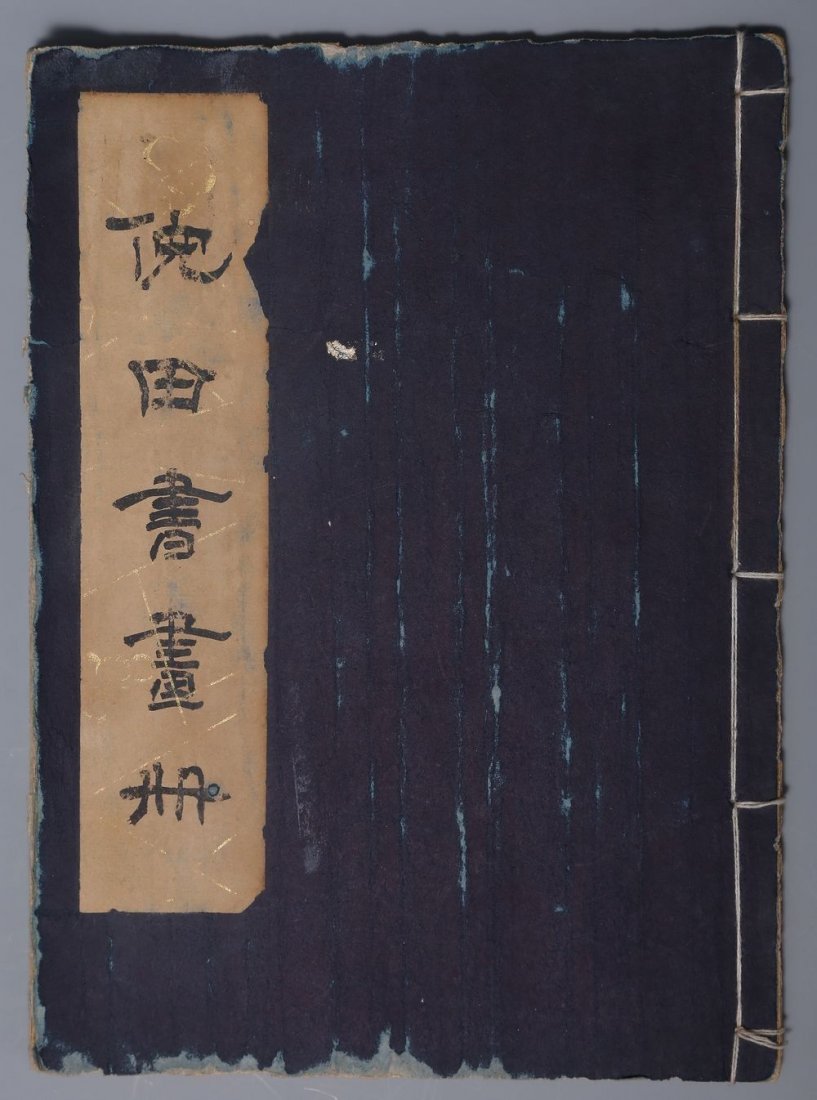 倪田書畫冊